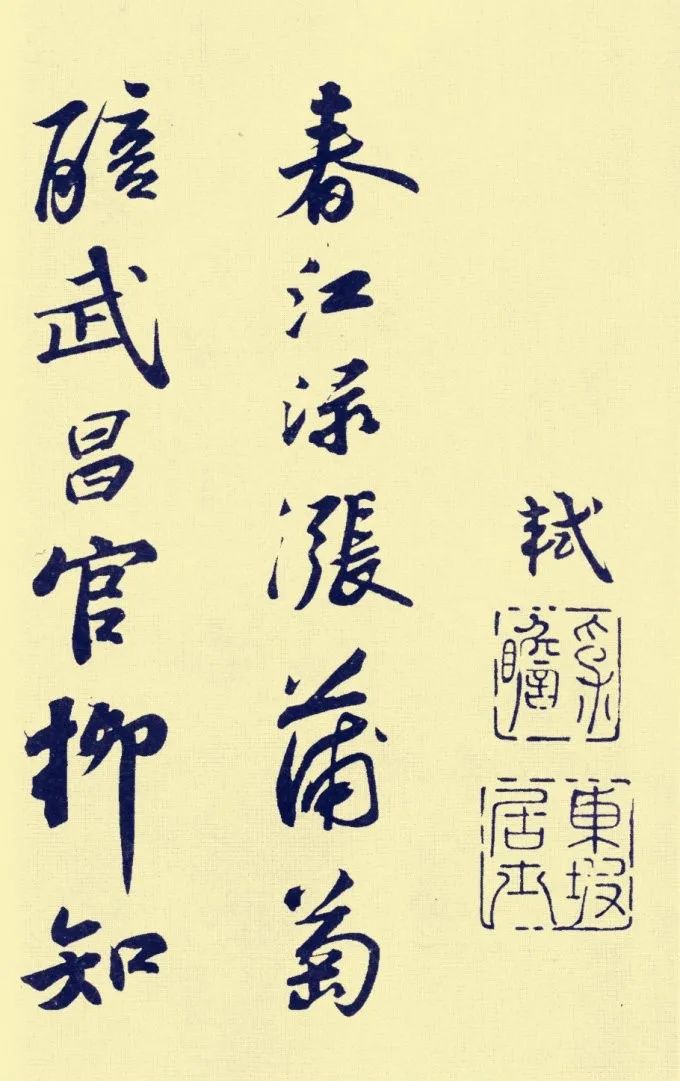 軾
瞻
東坡
居士
春江淥漲蒲萄
醅武昌官柳知